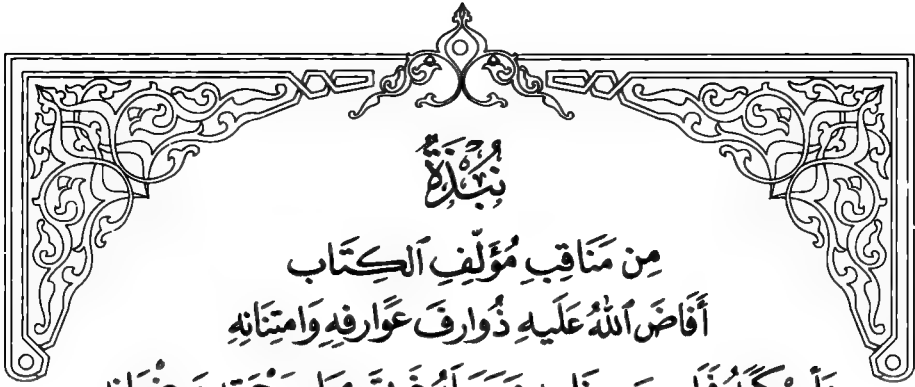 نُبْذَةٌ
مِن مَنَاقِبِ مُؤَلِّفِ ٱلكِتَاب
أَفَاضَ ٱللهُ عَلَيهِ ذُوارفَ عَوَارفِهِ وَامتِنَانِهِ